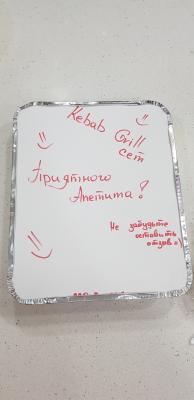 Kebab Grill
сет
Приятного
Апетита!
Не забудьте
оставить
отзыв:)